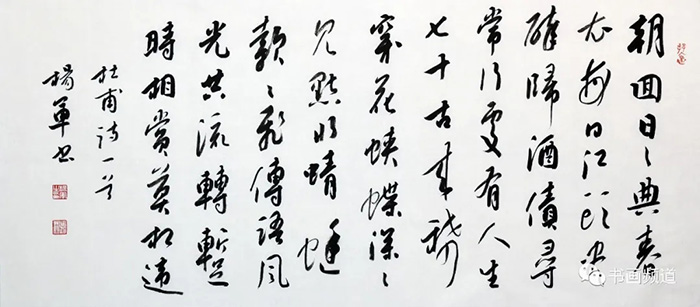 朝回日々典春
衣每日江头尽
醉歸酒債尋
常行處有人生
七十古来稀
穿花蛱蝶深々
见點水蜻蜓
款々飛傳語風
光共流轉暫
時相賞莫相違
杜甫诗一首
楊軍书
书画频道